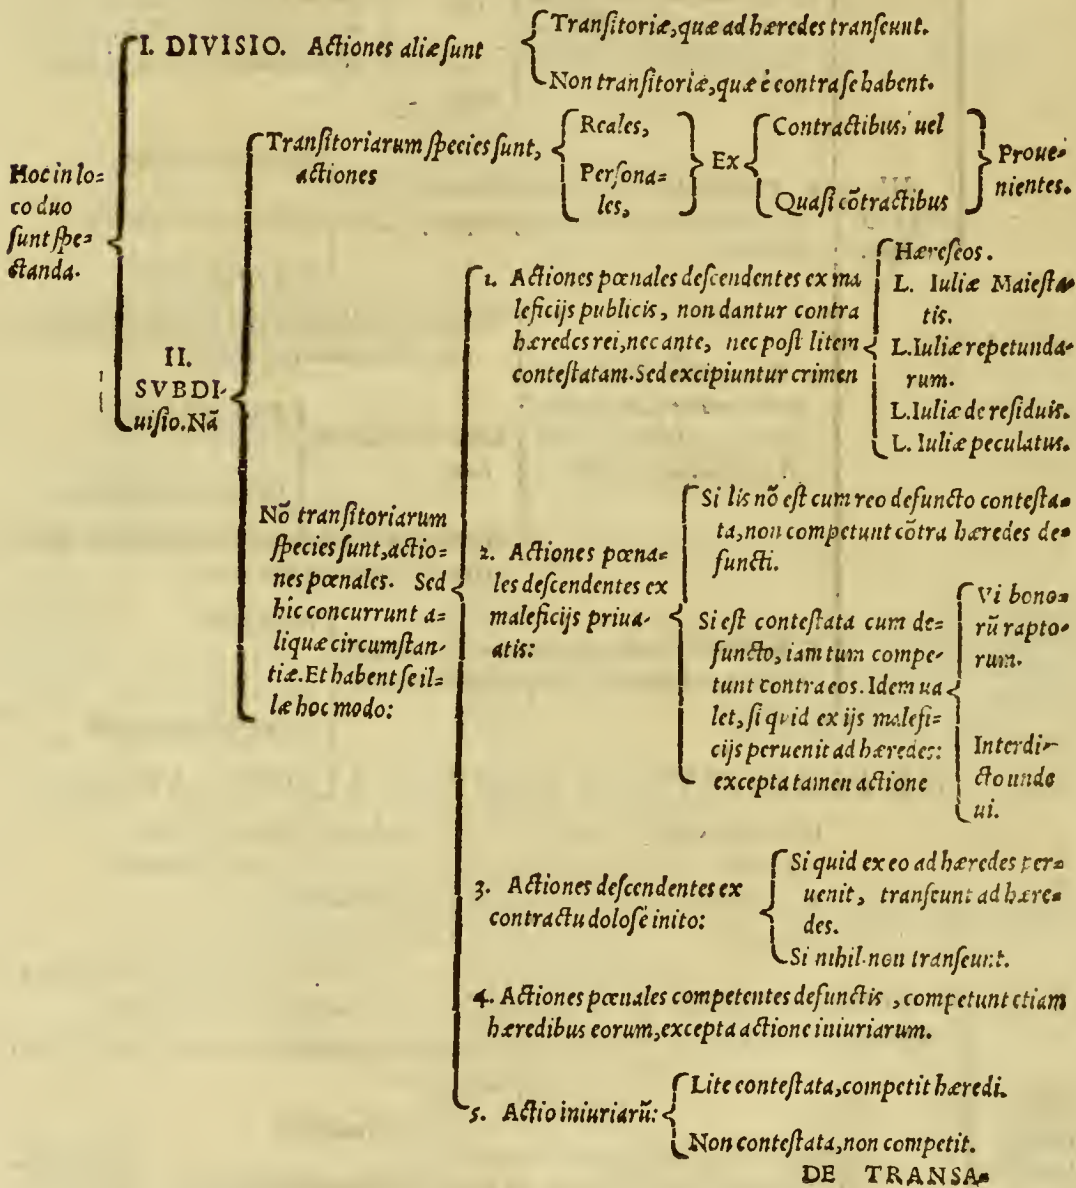 Hoc in lo=
co duo
sunt spe=
ctanda.
I. DIVISIO. Actiones aliæ sunt
Transitoriæ, quæ ad hæredes transeunt.
Non transitoriæ, quæ è contra se habent.
II.
SVBDI-
uisio. Nã
Transitoriarum species sunt,
actiones
Reales,
Persona=
les,
Ex
Contractibus, uel
Quasi cõtractibus
Proue=
nientes.
Nõ transitoriarum
species sunt, actio=
nes pœnales. Sed
hic concurrunt a=
liquæ circumstan-
tiæ. Et habent se il=
læ hoc modo:
1. Actiones pœnales descendentes ex ma
leficijs publicis, non dantur contra
hæredes rei, nec ante, nec post litem
contestatam. Sed excipiuntur crimen
Hæreseos.
L. Iuliæ Maiesta=
tis.
L. Iuliæ repetunda=
rum.
L. Iuliæ de residuis.
L. Iuliæ peculatus.
2. Actiones pœna=
les descendentes ex
maleficijs priua-
atis:
Si lis nõ est cum reo defuncto contesta=
ta, non competunt cõtra hæredes de=
functi.
Si est contestata cum de=
functo, iam tum compe-
tunt contra eos. Idem ua
let, si quid ex ijs malefi=
cijs peruenit ad hæredes:
excepta tamen actione
Vi bono=
rũ rapto=
rum.
Interdi-
cto unde
ui.
3. Actiones descendentes ex
contractu dolosè inito:
Si quid ex eo ad hæredes per=
uenit, transeunt ad hære=
des.
Si nihil non transeunt.
4. Actiones pœnales competentes defunctis, competunt etiam
hæredibus eorum, excepta actione iniuriarum.
5. Actio iniuriarũ:
Lite contestata, competit hæredi.
Non contestata, non competit.
DE TRANSA=